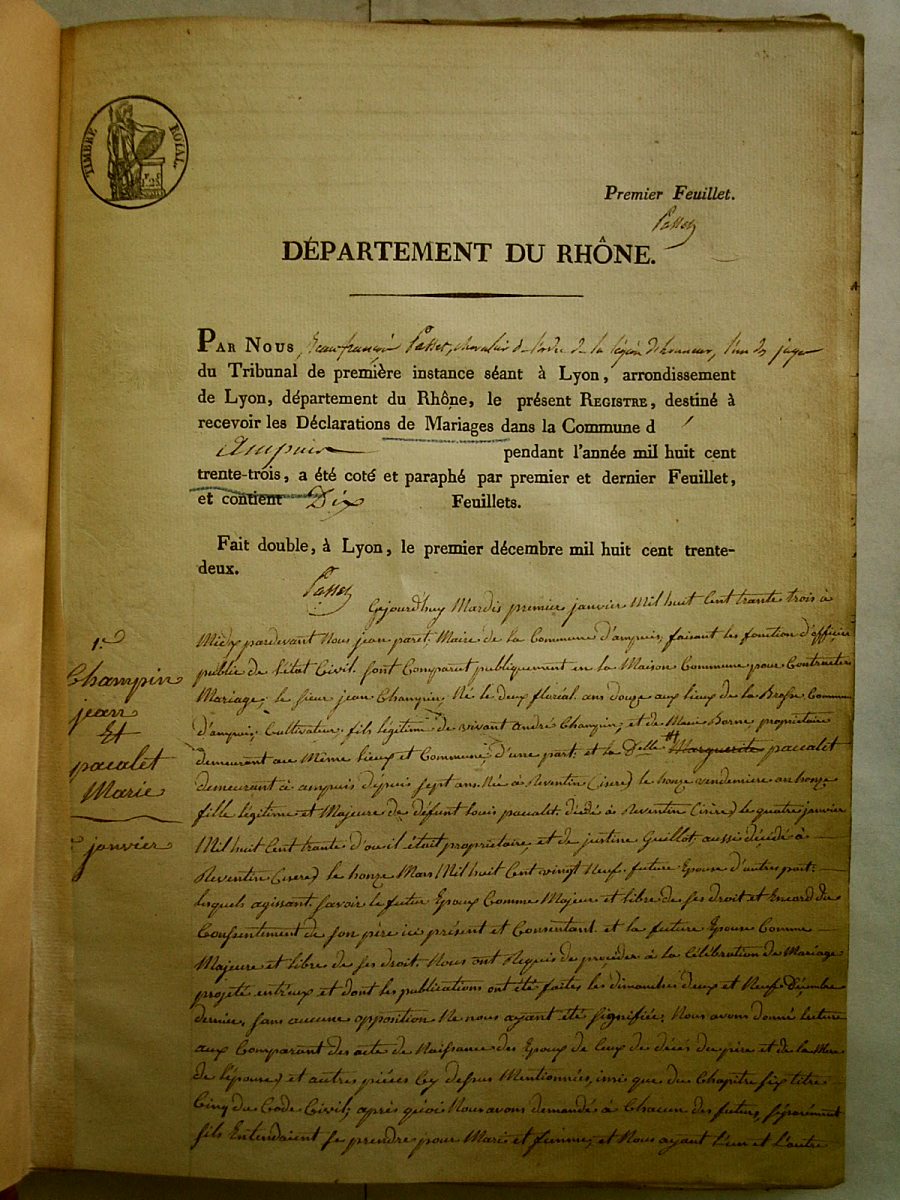 TIMBRE ROYAL.
Premier Feuillet.
Passet
DÉPARTEMENT DU RHÔNE.
PAR NOUS Jean françois Passet, chevalier de l'ordre de la légion d'honneur, l'un des juges
du Tribunal de première instance séant à Lyon, arrondissement
de Lyon, département du Rhône, le présent REGISTRE, destiné à
recevoir les Déclarations de Mariages dans la Commune d'
Ampuis pendant l'année mil huit cent
trente-trois, a été coté et paraphé par premier et dernier Feuillet,
et contient Dix Feuillets.
Fait double, à Lyon, le premier décembre mil huit cent trente-
deux.
Passet
1.er
Champin
jean
Et
pacalet
Marie
janvier
Cejourdhuy Mardis premier janvier Mil huit Cent trante trois à
Midy pardevant Nous jean paret, Maire de la Commune d'ampuis, faisant les fonction d'officier
public de l'état Civil. sont Comparut publiquement en la Maison Commune pour Contracter
Mariage; le sieur jean Champin, Né le deux florial ans douze aux lieux de la Brosse Commune
d'ampuis. Cultivateur, fils légitime de vivant andré Champin, et de Marie Borne, propriétaire
demeurant au Même lieux et Commune, d'une part. et la D.elle Marguerite pacalet
demeurant à ampuis depuis sept ans. Née à Reventin (isere) le honze vendemiere an honze
fille légitime et Majeure de défunt louis pacalet. décédé à Reventin (isire) le quatre janvier
Mil huit Cent trante d'ou il était propriétaire et de justine Guillot, aussi décédé à
Reventin (isere) le honze Mars Mil huit Cent vingt Neuf. future Epouse d'autre part.
lesquels agissant. savoir le futur Epoux Comme Majeur et libre de ses droit et Encord du
Consentement de son père ici présent et Consentant. et la future Epouse Comme
Majeure et libre de ses droit. Nous ont Requis de procéder à la Célébration de Mariage
projeté entreux et dont les publications ont été faites les dimanches deux et Neuf Décembre
dernier, sans aucune opposition Ne nous ayant été signifiée, Nous avons donné lecture
aux Comparant des acte de Naissance des Epoux de Ceux de décès du père et de la Mere
de l'épouse) et autres pièces Cy dessus Mentionnées, insi que du Chapitre six titre
Cinq du Code Civil; après quoi Nous avons demandés à Chacun des futurs, séparément
s'ils Entendaient se prendre pour Maris et femme, et Nous ayant l'un et l'autre